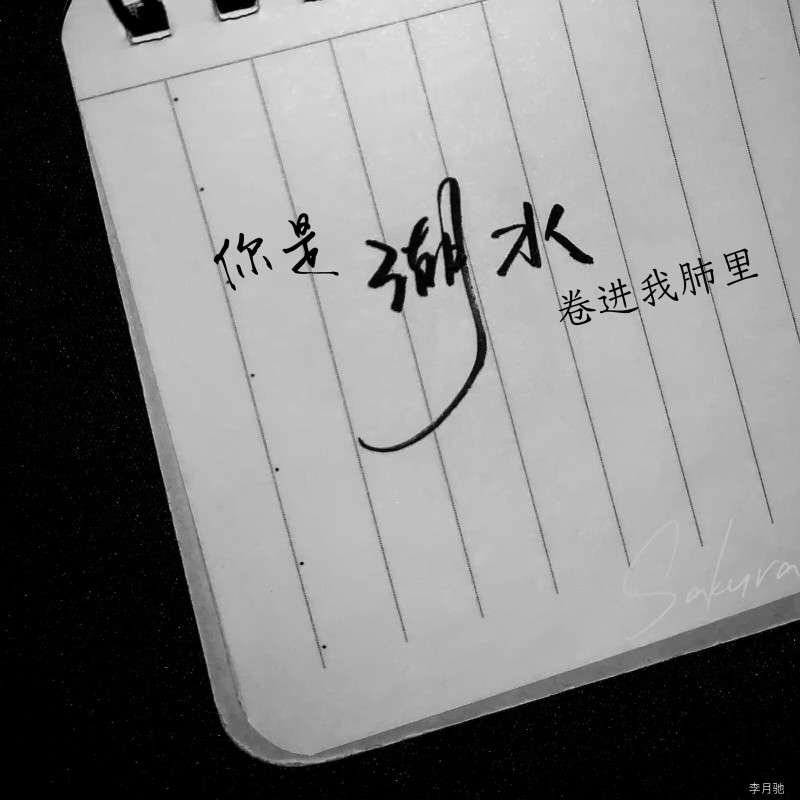 你是湖水
卷进我肺里
Sakura
李月驰